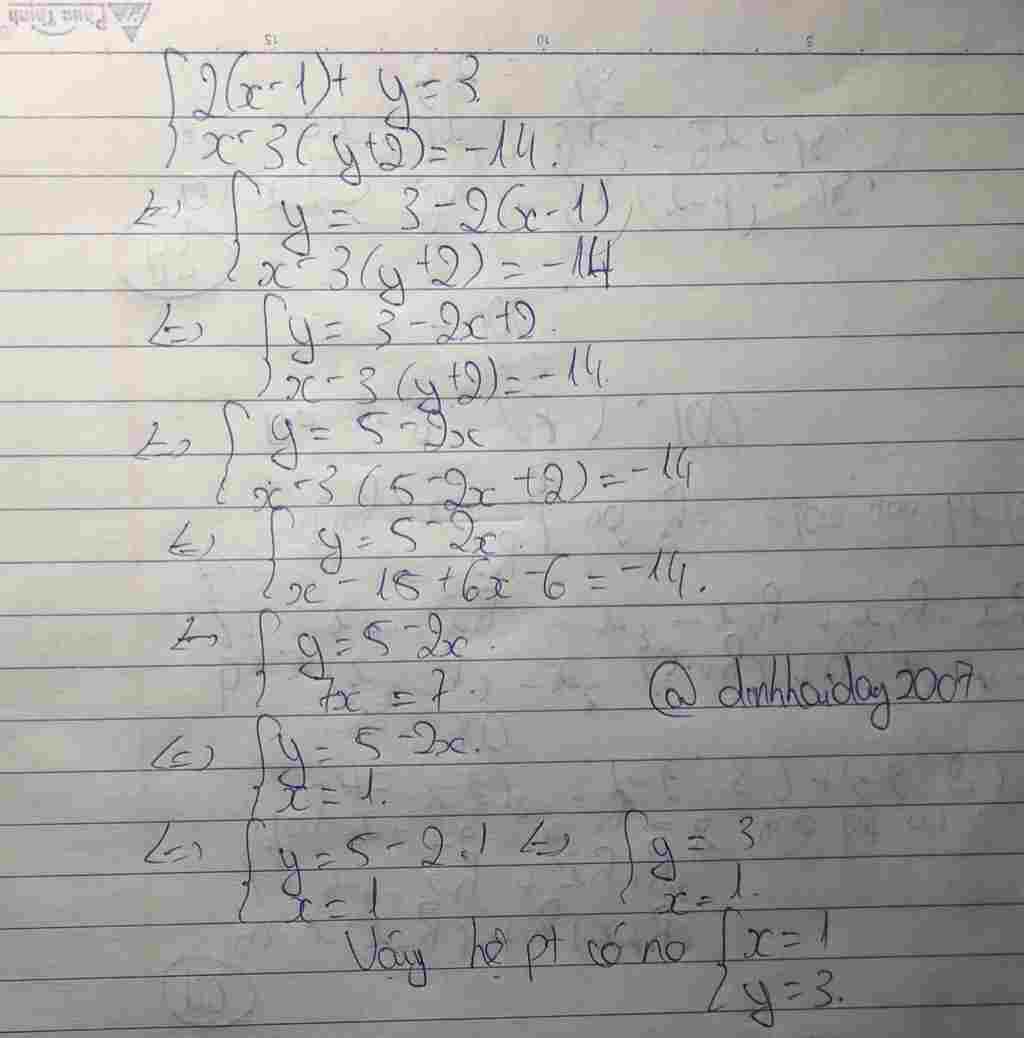 Phúc Thịnh
15 10 5
2(x-1)+ y = 3
x-3(y+2)=-14.
<=> y = 3-2(x-1)
x-3(y+2) = -14
<=> y = 3-2x+2.
x-3(y+2)=-14.
<=> y = 5-2x
x-3(5-2x+2)=-14
<=> y = 5-2x.
x-15+6x-6=-14.
<=> y=5-2x.
7x = 7.
@dinhhaiday2007
<=> y = 5-2x.
x=1.
<=> y=5-2.1 <=> y = 3
x=1 x=1.
Vậy hệ pt có no x=1
y=3.